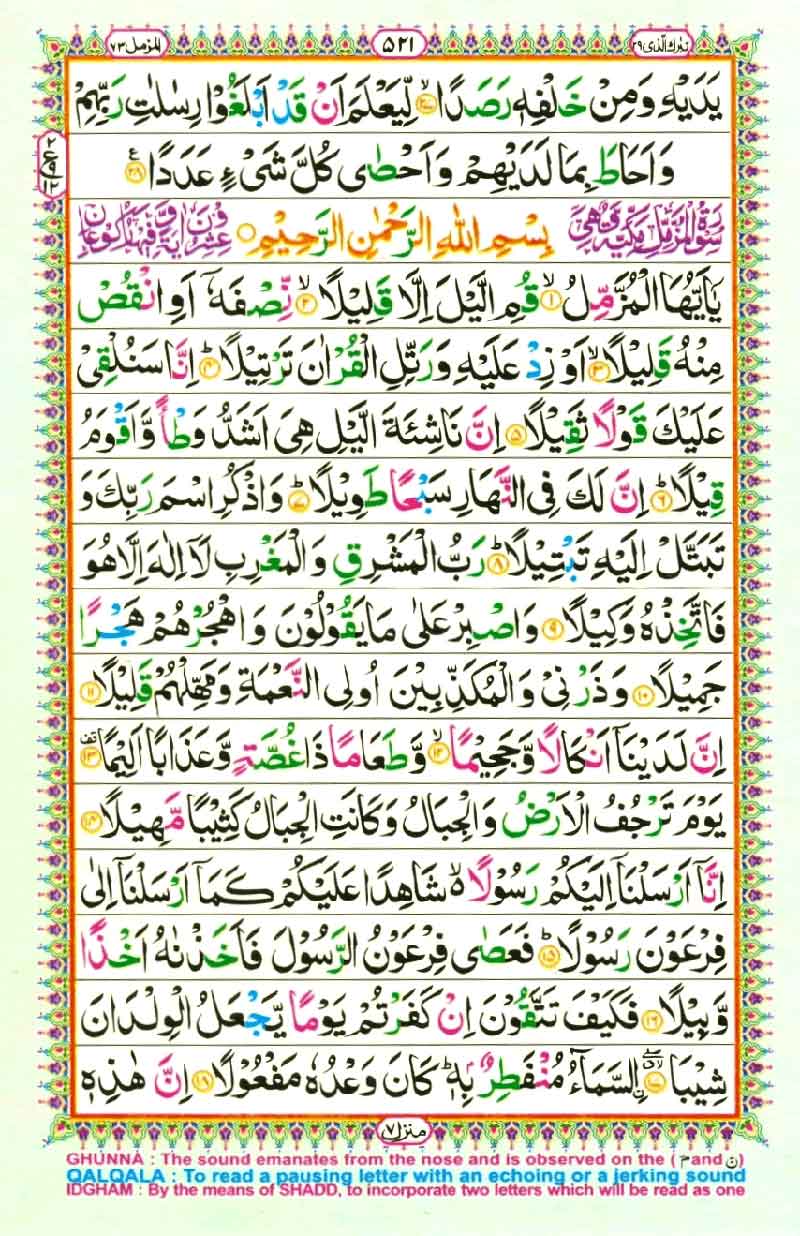 تبٰرك الذی ۲۹
۵۲۱
المزمل ۷۳
یَدَیْهِ وَمِنْ خَلْفِهٖ رَصَدًاۙ۲۷ لِّیَعْلَمَ اَنْ قَدْ اَبْلَغُوْا رِسٰلٰتِ رَبِّهِمْ
وَاَحَاطَ بِمَا لَدَیْهِمْ وَاَحْصٰی كُلَّ شَیْءٍ عَدَدًا۠۲۸
بِسْمِ اللهِ الرَّحْمٰنِ الرَّحِیْمِ
یٰۤاَیُّهَا الْمُزَّمِّلُۙ۱ قُمِ الَّیْلَ اِلَّا قَلِیْلًاۙ۲ نِّصْفَهٗۤ اَوِ انْقُصْ
مِنْهُ قَلِیْلًاۙ۳ اَوْ زِدْ عَلَیْهِ وَرَتِّلِ الْقُرْاٰنَ تَرْتِیْلًاؕ۴ اِنَّا سَنُلْقِیْ
عَلَیْكَ قَوْلًا ثَقِیْلًا۵ اِنَّ نَاشِئَةَ الَّیْلِ هِیَ اَشَدُّ وَطْاً وَّاَقْوَمُ
قِیْلًاؕ۶ اِنَّ لَكَ فِی النَّهَارِ سَبْحًا طَوِیْلًاؕ۷ وَاذْكُرِ اسْمَ رَبِّكَ وَ
تَبَتَّلْ اِلَیْهِ تَبْتِیْلًاؕ۸ رَبُّ الْمَشْرِقِ وَالْمَغْرِبِ لَاۤ اِلٰهَ اِلَّا هُوَ
فَاتَّخِذْهُ وَكِیْلًا۹ وَاصْبِرْ عَلٰی مَا یَقُوْلُوْنَ وَاهْجُرْهُمْ هَجْرًا
جَمِیْلًا۱۰ وَذَرْنِیْ وَالْمُكَذِّبِیْنَ اُولِی النَّعْمَةِ وَمَهِّلْهُمْ قَلِیْلًا۱۱
اِنَّ لَدَیْنَاۤ اَنْكَالًا وَّجَحِیْمًاۙ۱۲ وَّطَعَامًا ذَا غُصَّةٍ وَّعَذَابًا اَلِیْمًا۱۳
یَوْمَ تَرْجُفُ الْاَرْضُ وَالْجِبَالُ وَكَانَتِ الْجِبَالُ كَثِیْبًا مَّهِیْلًا۱۴
اِنَّاۤ اَرْسَلْنَاۤ اِلَیْكُمْ رَسُوْلًا ۙ۬ شَاهِدًا عَلَیْكُمْ كَمَاۤ اَرْسَلْنَاۤ اِلٰی
فِرْعَوْنَ رَسُوْلًاؕ۱۵ فَعَصٰی فِرْعَوْنُ الرَّسُوْلَ فَاَخَذْنٰهُ اَخْذًا
وَّبِیْلًا۱۶ فَكَیْفَ تَتَّقُوْنَ اِنْ كَفَرْتُمْ یَوْمًا یَّجْعَلُ الْوِلْدَانَ
شِیْبَاۗۖ۱۷ اِ۟لسَّمَآءُ مُنْفَطِرٌۢ بِهٖؕ كَانَ وَعْدُهٗ مَفْعُوْلًا۱۸ اِنَّ هٰذِهٖ
منزل ۷
GHUNNA : The sound emanates from the nose and is observed on the (م and ن)
QALQALA : To read a pausing letter with an echoing or a jerking sound
IDGHAM : By the means of SHADD, to incorporate two letters which will be read as one